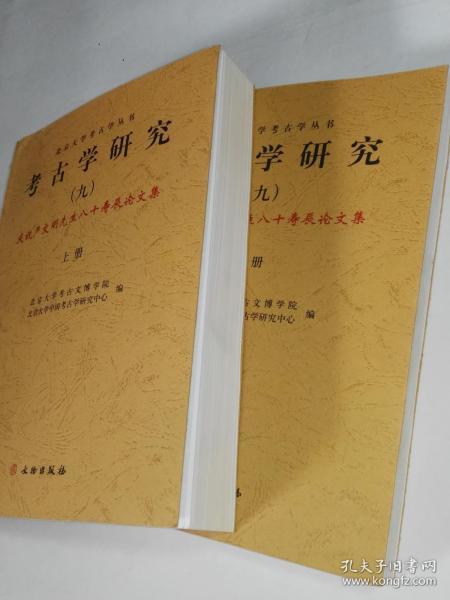 北京大学考古学丛书
考古学研究
（九）
庆祝严文明先生八十寿辰论文集
上册
北京大学考古文博学院
北京大学中国考古学研究中心
编
文物出版社
学考古学丛书
学研究
九）
生八十寿辰论文集
册
古文博学院
古学研究中心
编
物
孔夫子旧书网
www.kongfz.com